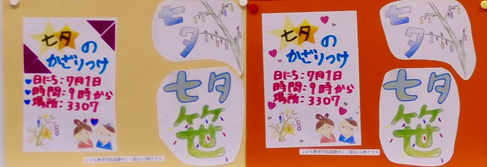 七夕の
かざりつけ
日にち:7月1日
時間:9時から
場所:3307
七夕
七夕
笹
七夕の
かざりつけ
日にち:7月1日
時間:9時から
場所:3307
七夕
七夕
笹